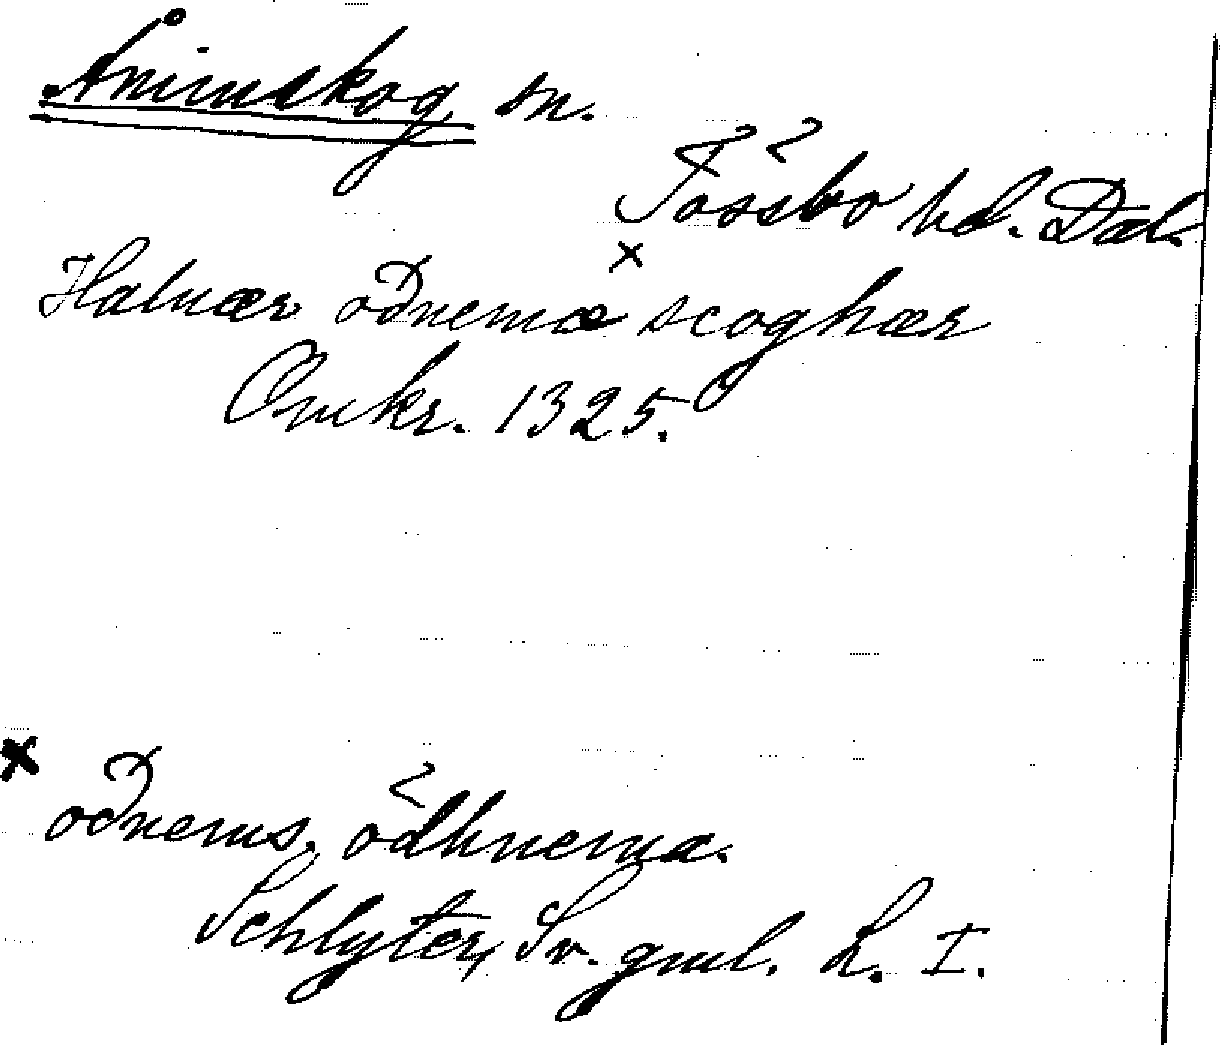 Ånimskog sn.
Tössbo hd. Dal.
×
Haluær oðnemæ scoghær
Omkr. 1325.
× oðnems, ödhnema.
Schlyter, Sv. gml. L. I.